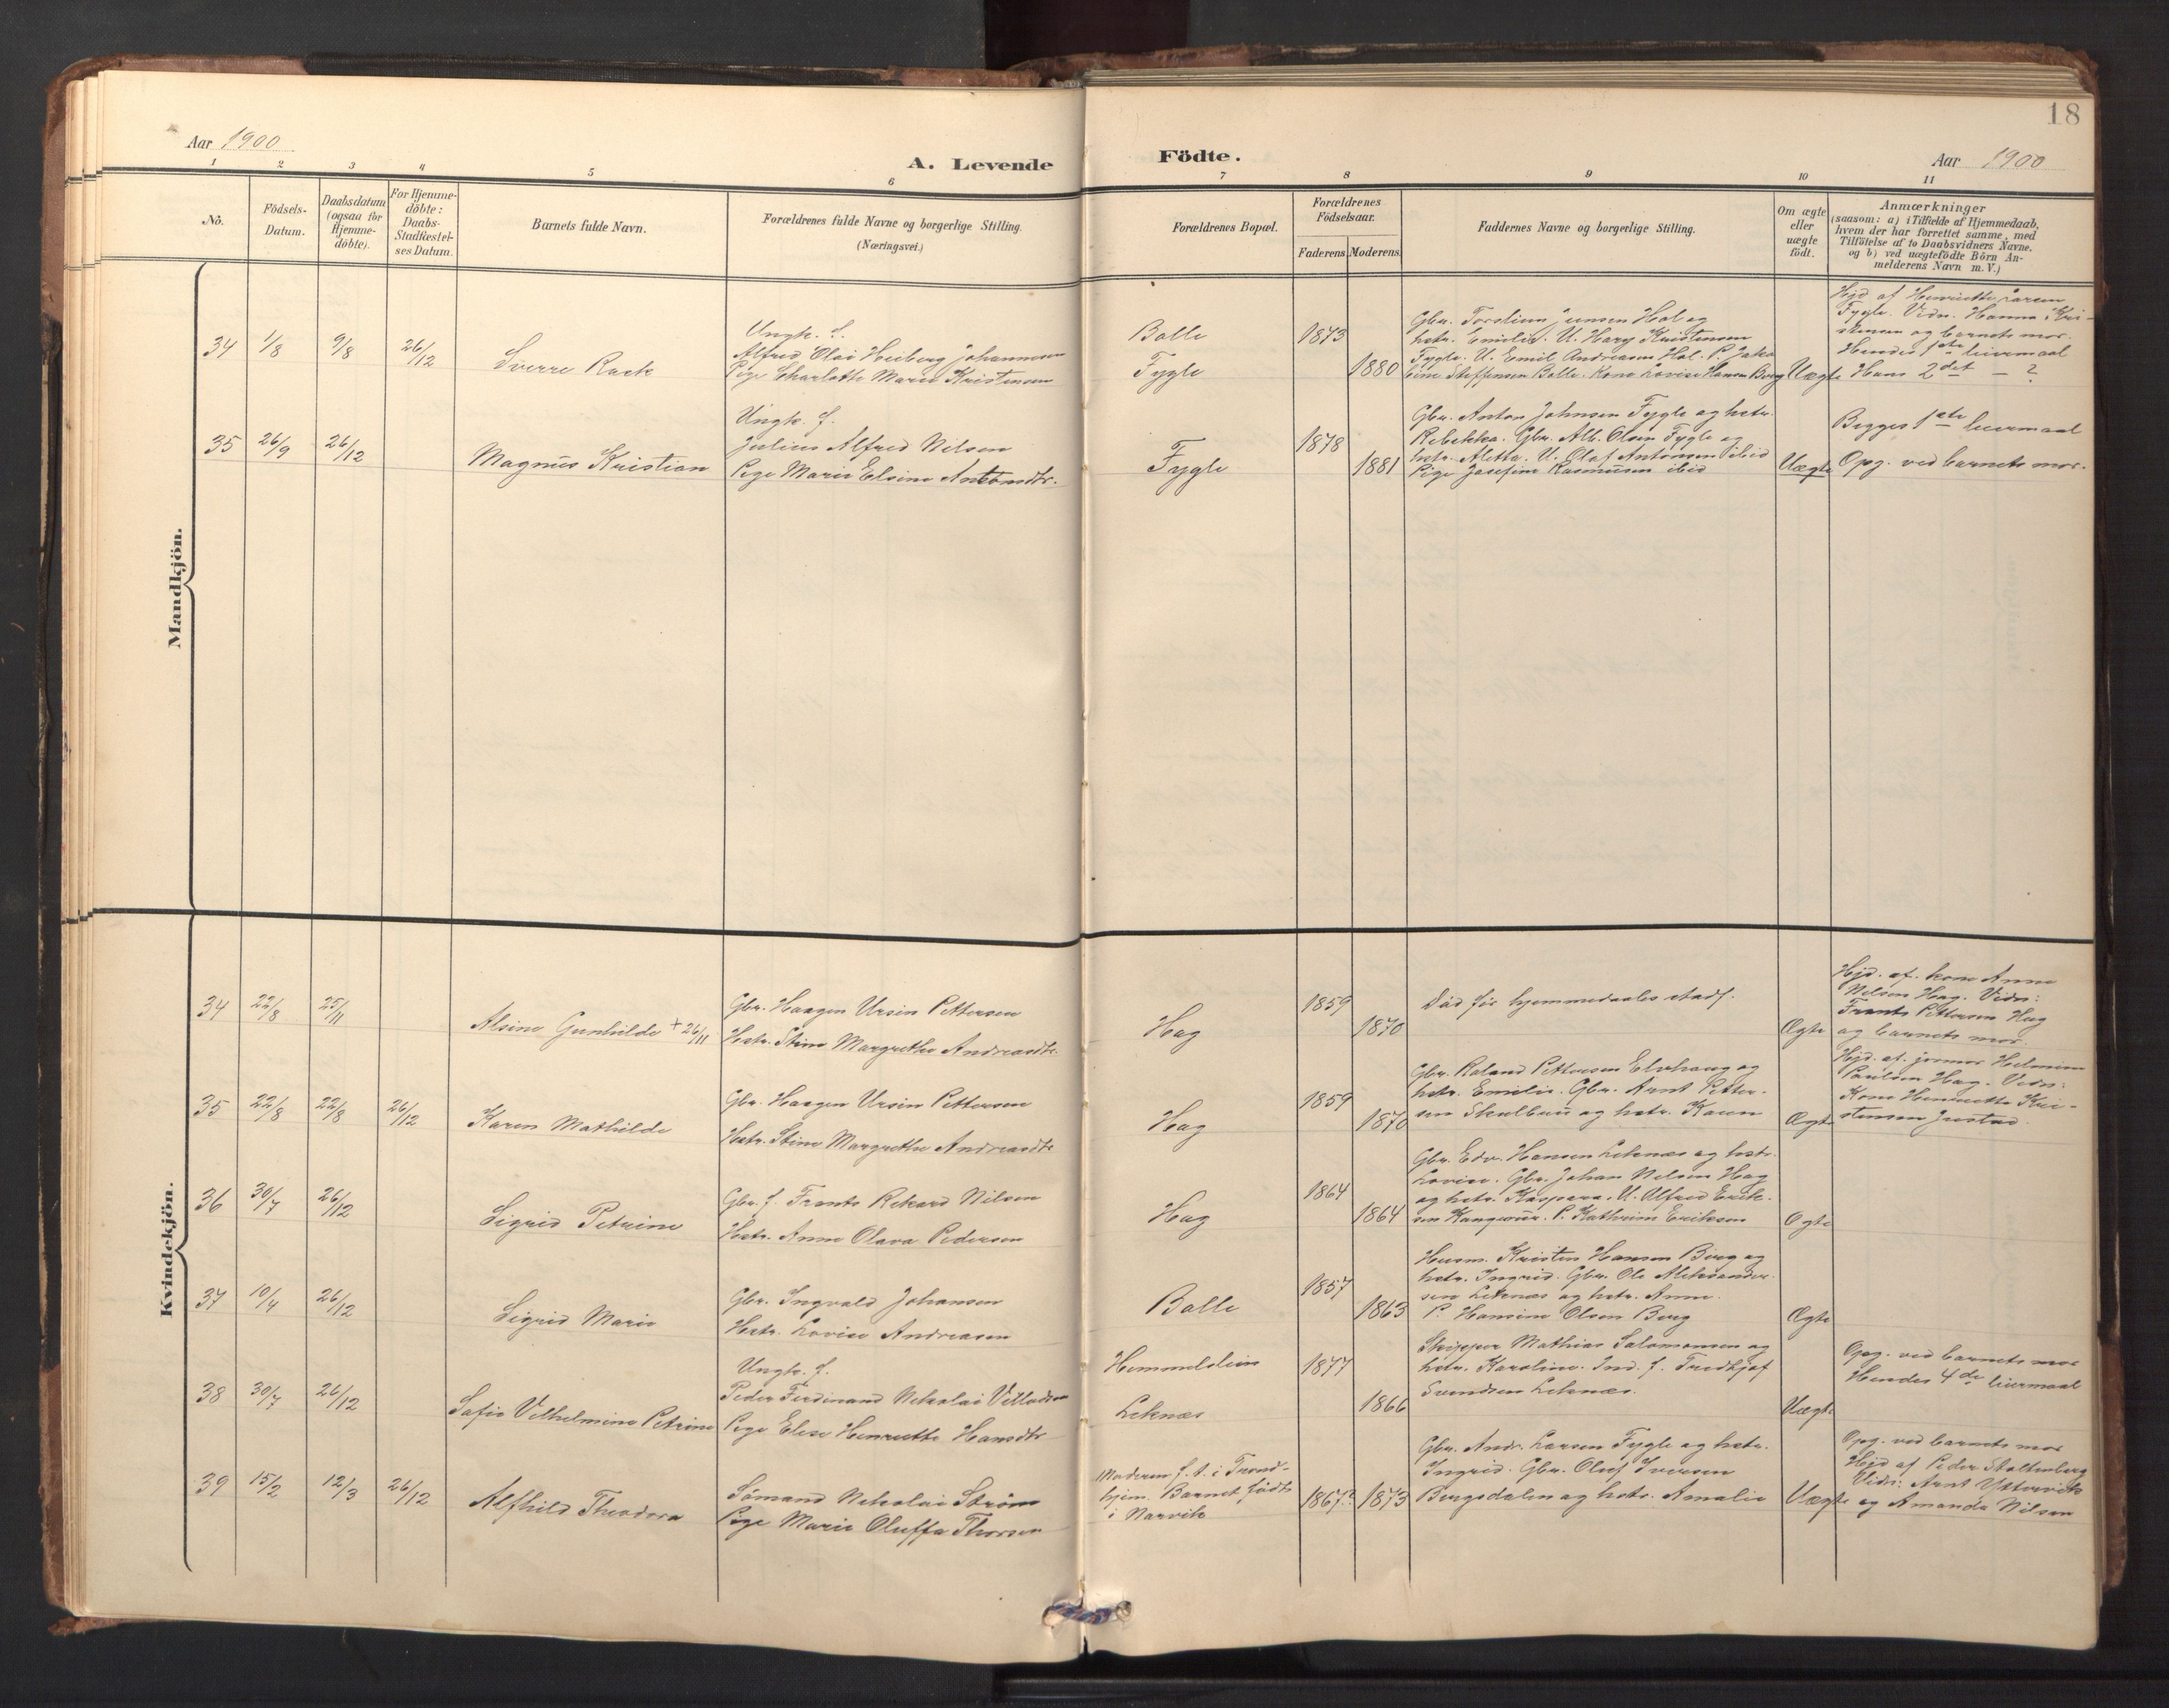 18
Aar 1900
A. Levende
Födte.
Aar 1900
1 2 3 4 5 6 7 8 9 10 11
No.
Födsels-
Datum.
Daabsdatum
(ogsaa for
Hjemme-
döbte).
For Hjemme-
döbte:
Daabs-
Stadfæstel-
ses Datum.
Barnets fulde Navn.
Forældrenes fulde Navne og borgerlige Stilling.
(Næringsvei.)
Forældrenes Bopæl.
Forældrenes
Födselsaar.
Faderens
Moderens
Faddernes Navne og borgerlige Stilling.
Om ægte
eller
uægte
födt.
Anmærkninger
(saasom: a) i Tilfælde af Hjemmedaab,
hvem der har forrettet samme, med
Tilföielse af to Daabsvidners Navne,
og b) ved uægtefödte Börn An-
melderens Navn m. V.)
Mandkjön.
34 1/8 9/8 26/12
Sverre
Ungk. f.
Alfred Olai Heiberg Johannesen
Pige Charlotte Marie Kristensen
Balle
Fygle
1873
1880
Gbr. Torstein Jensen Hol og
hstr. Emilie. U. Hary Kristensen
Fygle. U. Emil Andreasen Hol. P. Jako
bine Steffensen Balle. Kone Lovise Hansen Berg
Uægte
Hjd af Henriette Larsen
Fygle. Vidn. Hanna Kri-
stensen og barnets mor.
Hendes 1ste leiermaal
Hans 2det - ?
35 26/9 26/12
Magnus Kristian
Ungk. f.
Julius Alfred Nilsen
Pige Marie Elsine Antonsdtr.
Fygle
1878
1881
Gbr. Anton Johnsen Fygle og hstr.
Rebekka. Gbr. Alb. Olsen Fygle og
hstr. Aletta. U. Olaf Antonsen ibid
Pige Josefine Rasmusen ibid
Uægte
Begges 1ste leiermaal
Opg. ved barnets mor.
Kvindekjön.
34 22/8 25/11
Alsine Gunhilde + 26/11
Gbr. Haagen Ursin Pettersen
Hstr. Stine Margrethe Andreasdtr.
Hag
1859
1870
Död før hjemmedaabs stadf.
Ægte
Hjd. af. kone Anne
Nilsen Hag. Vidn:
Frants Pettersen Hag
og barnets mor.
35 22/8 22/8 26/12
Karen Mathilde
Gbr. Haagen Ursin Pettersen
Hstr. Stine Margrethe Andreasdtr
Hag
1859
1870
Gbr. Roland Pettersen Elvhaug og
hstr. Emilie. Gbr. Arnt Petter-
sen Skulbru og hstr. Karen
Ægte
Hjd. af. jormor Helmine
Paulsen Hag. Vidn:
Kone Henriette Kri-
stensen Justad.
36 30/7 26/12
Sigrid Petrine
Gbr. f. Frants Rikard Nilsen
Hstr. Anne Olava Pedersen
Hag
1864
1864
Gbr. Edv. Hansen Leknes og hstr.
Lovise. Gbr. Johan Nilsen Hag
og hstr. Kaspara. U. Alfred Erik-
sen Kangerur. P. Kathrine Eriksen
Ægte
37 10/4 26/12
Sigrid Marie
Gbr. Ingvald Johansen
Hstr. Lovise Andreasen
Balle
1857
1863
Husm. Kristen Hansen Berg og
hstr. Ingrid. Gbr. Ole Aleksander-
sen Leknes og hstr. Anne.
P. Hansine Olsen Berg
Ægte
38 30/7 26/12
Sofie Vilhelmine Petrine
Ungk. f.
Peder Ferdinand Nikolai Villadsen
Pige Elise Henriette Hansdtr
Hemmelstein
Leknæs
1877
1866
Skipper Mathias Salomonsen og
hstr. Karoline. Ind. f. Fredhjof
Svendsen Leknæs.
Uægte
Opg. ved barnets mor
Hendes 4de leiermaal
39 15/2 12/3 26/12
Alfhild Theodora
Sömand Nikolai Ström
Pige Marie Oluffa Thorsen
Moderen f. t. i Trond-
hjem. Barnet født
i Narvik
1867? 1873
Gbr. Andr. Larsen Fygle og hstr.
Ingrid. Gbr. Oluf Iversen
Bergsdalen og hstr. Amalie
Uægte
Opg. ved barnets mor
Hjd af Peder Stoltenberg
Vidn: Arnt Ytterviik
og Amanda Nilsen